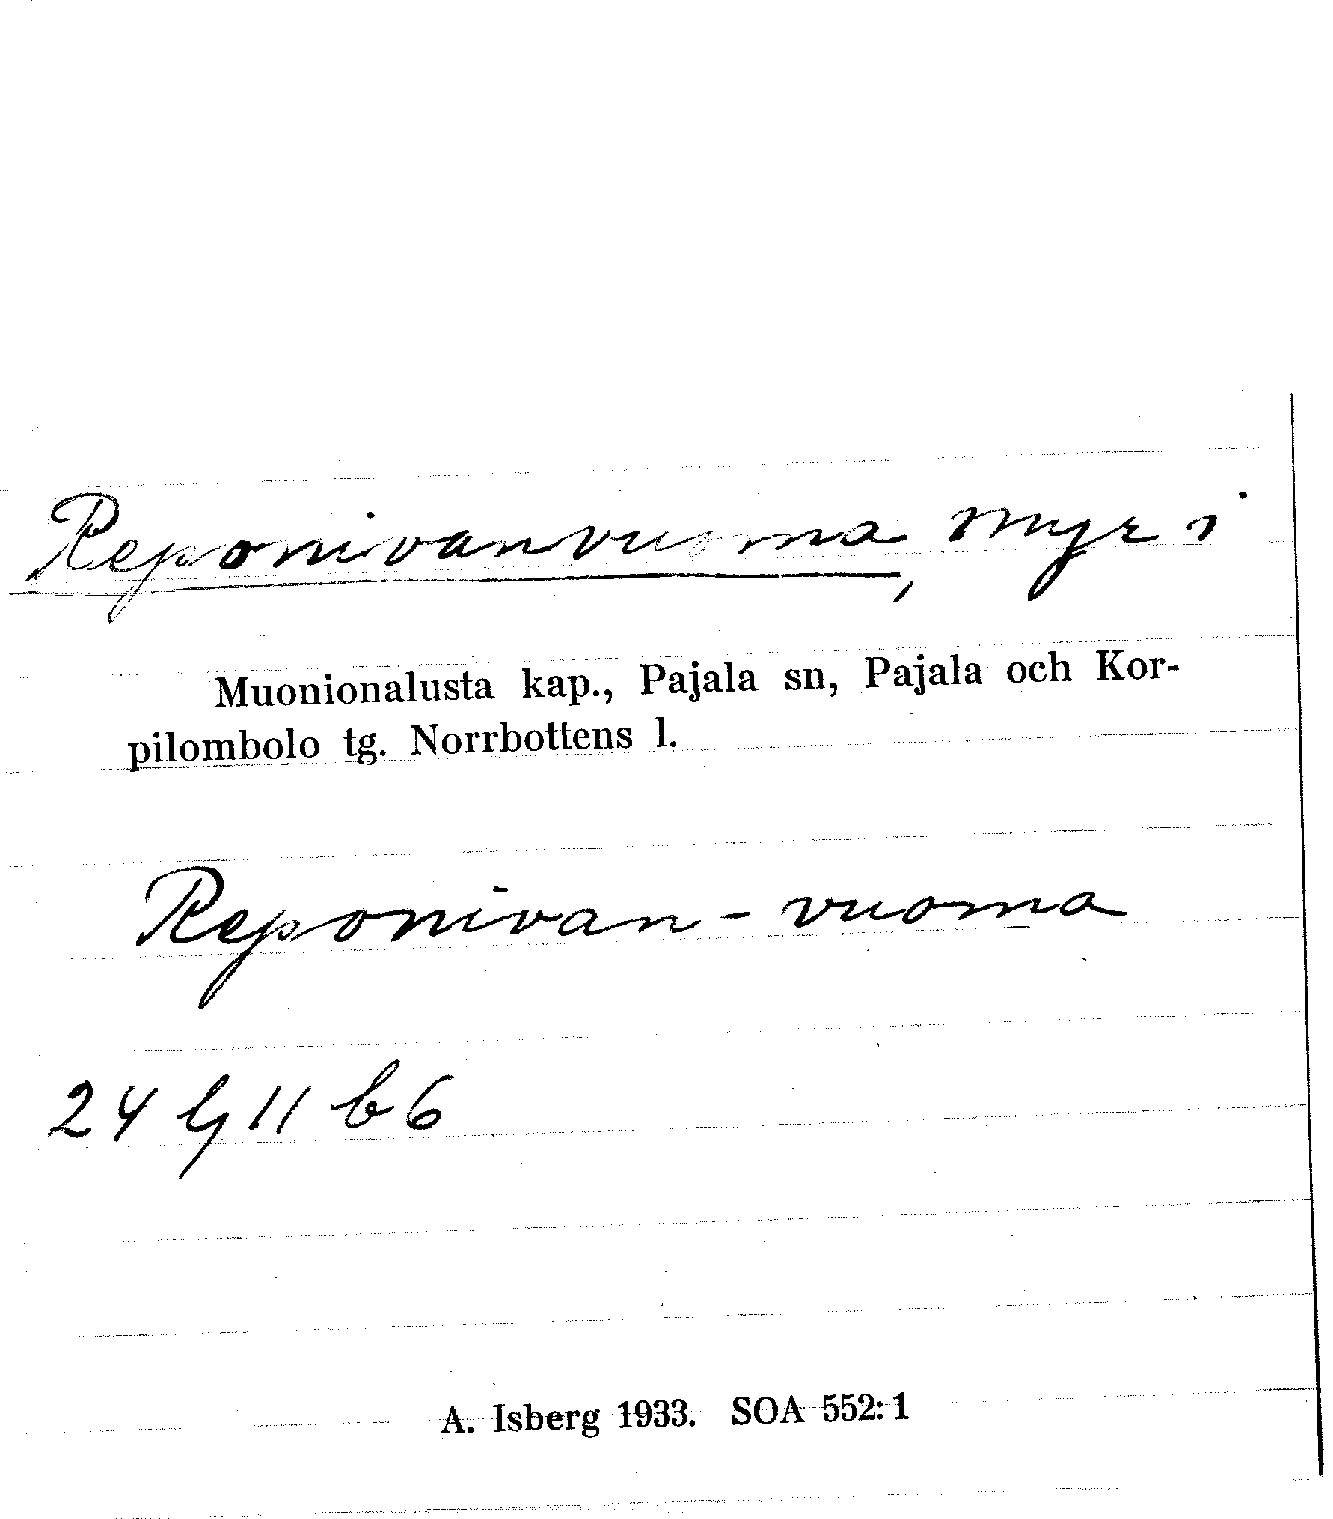 Reponivanvuoma, myr i
Muonionalusta kap., Pajala sn, Pajala och Kor-
pilombolo tg. Norrbottens l.
Reponivan-vuoma
24 lj 11 b 6
A. Isberg 1933. SOA 552:1